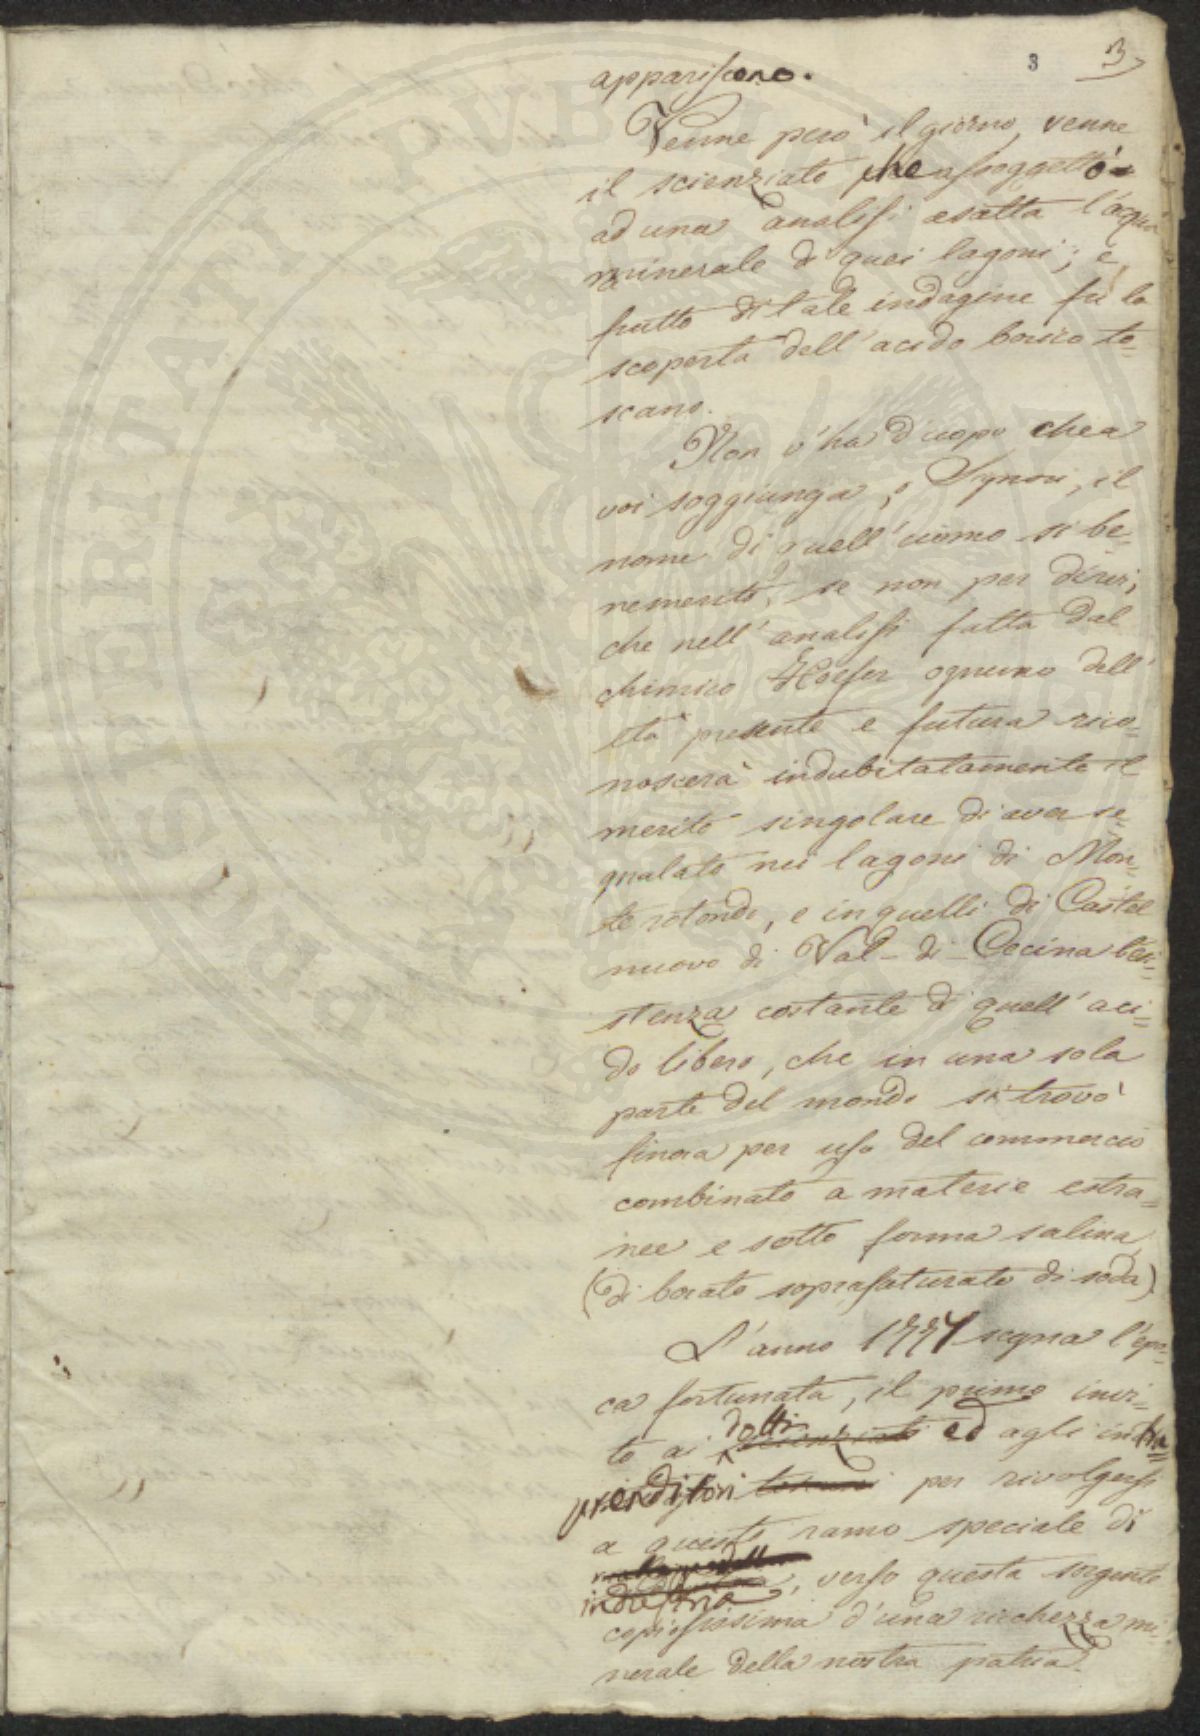 3 3
appariscono.
Venne però il giorno, venne
il scienziato che assoggettò
ad una analisi esatta l'acqua
minerale di quei lagoni; e
frutto di tale indagine fu la
scoperta dell'acido borico to=
scano.
Non v'ha d'uopo che a
voi soggiunga, o Signori, il
nome di quell'uomo sì be=
nemerito, se non per dirvi,
che nell'analisi fatta dal
chimico Hoefer ognuno dell'
età presente e futura rico=
noscerà indubitatamente il
merito singolare di aver se=
gnalato nei lagoni di Mon=
te rotondo, e in quelli di Castel
nuovo di Val-di-Cecina l'esi=
stenza costante di quell'aci=
do libero, che in una sola
parte del mondo si trovò
finora per uso del commercio
combinato a materie estra=
nee e sotto forma salina
(di borato soprasaturato di soda).
L'anno 1777 segna l'epo=
ca fortunata, il primo invi=
to ai dotti scienziati ed agli intra=
prenditori toscani per rivolgersi
a questo ramo speciale di
industria, verso questa sorgente
copiosissima d'una ricchezza mi=
nerale della nostra patria.
GSTERITATI PVBLICAE